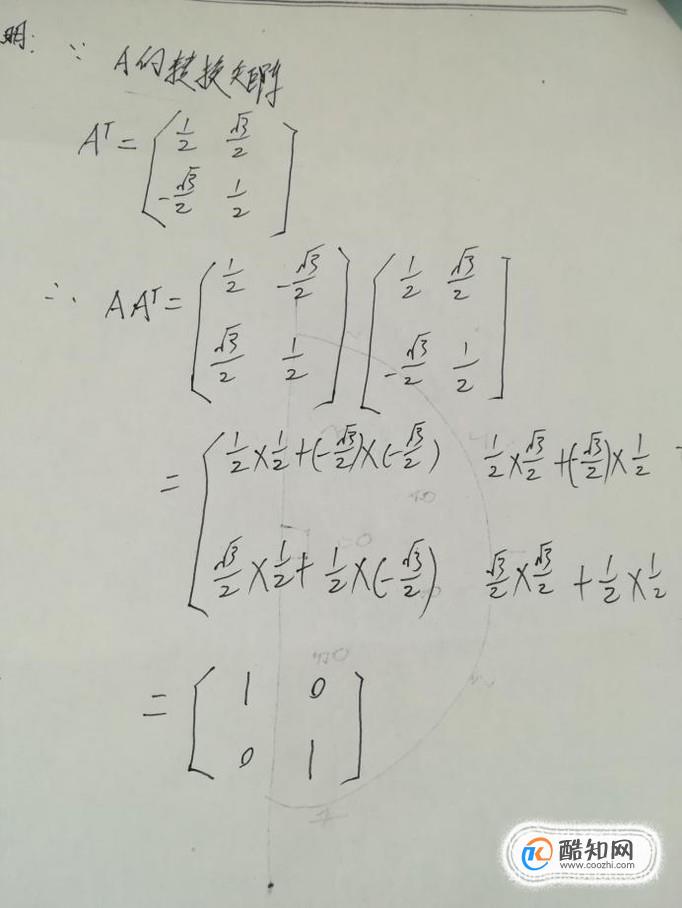 明: ∵ A的转换矩阵
Aᵀ = [ 1/2 √3/2
-√3/2 1/2 ]
∴ AAᵀ = [ 1/2 -√3/2 [ 1/2 √3/2
√3/2 1/2 ] -√3/2 1/2 ]
= [ 1/2×1/2+(-√3/2)×(-√3/2) 1/2×√3/2+(-√3/2)×1/2
√3/2×1/2+1/2×(-√3/2) √3/2×√3/2+1/2×1/2
= [ 1 0
0 1 ]
酷知网
www.coozhi.com